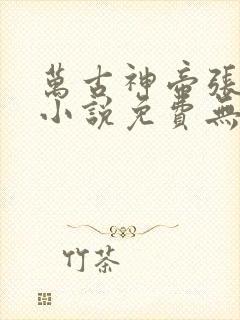 萬古神帝張
小說免費無
竹茶